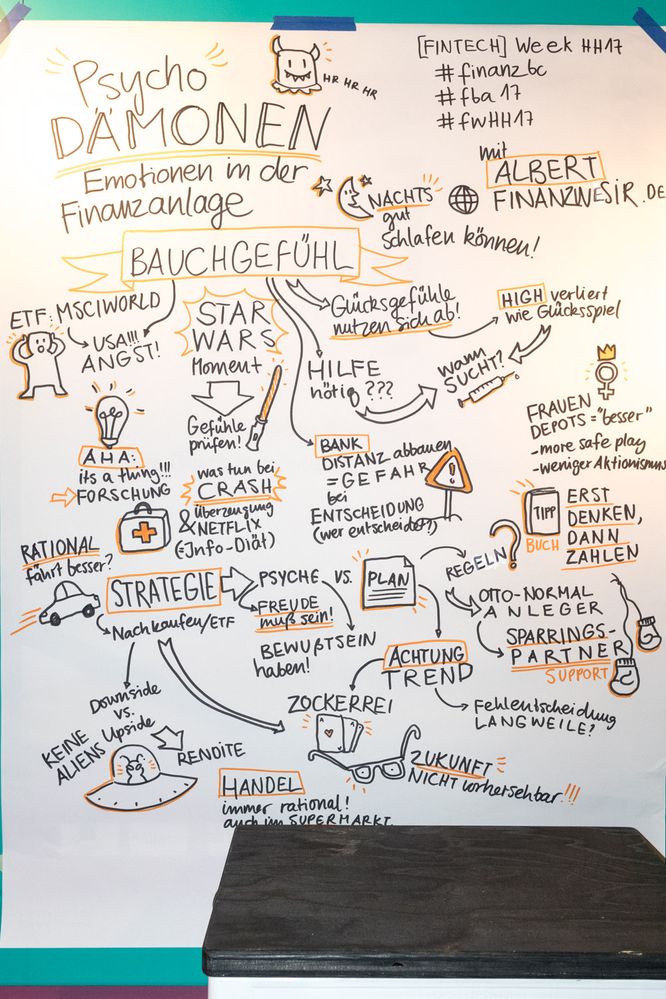 Psycho
DÄMONEN
Emotionen in der
Finanzanlage
HR HR HR
[FINTECH] Week HH17
#finanzbc
#fba17
#fwHH17
mit
ALBERT
FINANZWESIR.DE
NACHTS
gut
schlafen können!
BAUCHGEFÜHL
ETF: MSCIWORLD
USA!!!
ANGST!
STAR
WARS
Moment
Gefühle
prüfen!
Glücksgefühle
nutzen sich ab!
HIGH verliert
wie Glücksspiel
HILFE
nötig???
wann
SUCHT?
FRAUEN
DEPOTS = "besser"
- more safe play
- weniger Aktionismus
AHA:
its a thing!!!
FORSCHUNG
was tun bei
CRASH
Überzeugung
& NETFLIX
(=Info-Diät)
BANK
DISTANZ abbauen
= GEFAHR
bei
ENTSCHEIDUNG
(wer entscheidet?)
TIPP
BUCH
ERST
DENKEN,
DANN
ZAHLEN
RATIONAL
fährt besser?
STRATEGIE
Nachkaufen/ETF
PSYCHE VS. PLAN
FREUDE
muß sein!
BEWUßTSEIN
haben!
REGELN
?
OTTO-NORMAL
ANLEGER
SPARRINGS-
PARTNER
SUPPORT
ACHTUNG
TREND
Fehlentscheidung
LANGWEILE?
Downside
vs.
Upside
KEINE
ALIENS
RENDITE
ZOCKERREI
ZUKUNFT
NICHT vorhersehbar!!!
HANDEL
immer rational!
auch im SUPERMARKT.